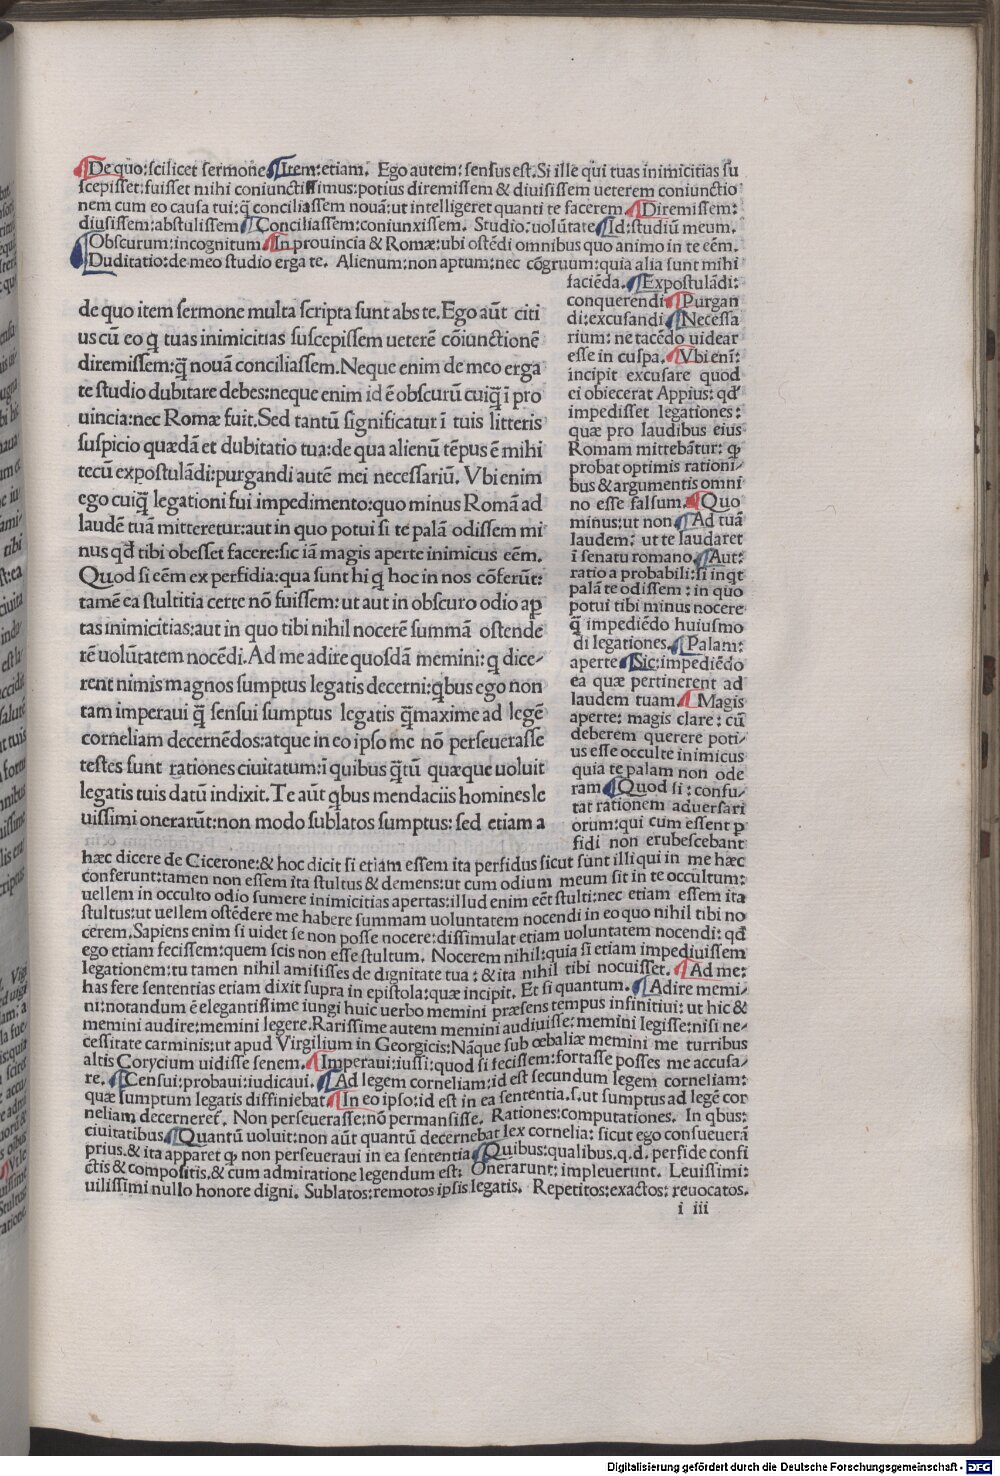 De quo:scilicet sermone Item:etiam. Ego autem:sensus est. Si ille qui tuas inimicitias su
scepisset:fuisset mihi coniunctissimus:potius diremissem & diuisissem ueterem coniunctio
nem cum eo causa tui:q̃ conciliassem nouã:ut intelligeret quanti te facerem Diremissem:
diusissem:abstulissem Conciliassem:coniunxissem. Studio:uolũtate Id:studiũ meum.
Obscurum:incognitum In prouincia & Romæ:ubi ostẽdi omnibus quo animo in te eẽm.
Duditatio:de meo studio erga te. Alienum:non aptum:nec cõgruum:quia alia sunt mihi
faciẽda. Expostulãdi:
conquerendi Purgan
di:excusandi Necessa
rium: ne tacẽdo uidear
esse in cuspa. Vbi eni:
incipit excusare quod
ei obiecerat Appius: qď
impedisset legationes:
quæ pro laudibus eius
Romam mittebãtur: ꝙ
probat optimis rationi/
bus & argumentis omni
no esse falsum. Quo
minus:ut non Ad tuã
laudem: ut te laudaret
ĩ senatu romano Aut:
ratio a probabili:si inqt
palã te odissem : in quo
potui tibi minus nocere
q̃ impediẽdo huiusmo
di legationes. Palam:
aperte Sic:impediẽdo
ea quæ pertinerent ad
laudem tuam. Magis
aperte: magis clare: cũ
deberem querere poti/
us esse occulte inimicus
quia te palam non ode
ram Quod si : confu/
tat rationem aduersari
orum:qui cum essent p
fidi non erubescebant
de quo item sermone multa scripta sunt abs te. Ego aũt citi
us cũ eo q tuas inimicitias suscepissem ueterẽ cõiunctionẽ
diremissem:q̃ nouã conciliassem. Neque enim de meo erga
te studio dubitare debes:neque enim id ẽ obscurũ cuiq̃ ĩ pro
uincia:nec Romæ fuit. Sed tantũ significatur ĩ tuis litteris
suspicio quædã et dubitatio tua:de qua alienũ tẽpus ẽ mihi
tecũ expostulãdi:purgandi autẽ mei necessariũ. Vbi enim
ego cuiq̃ legationi fui impedimento:quo minus Romã ad
laudẽ tuã mitteretur:aut in quo potui si te palã odissem mi
nus qď tibi obesset facere:sic iã magis aperte inimicus eẽm.
Quod si eẽm ex perfidia:qua sunt hi q hoc in nos cõferũt:
tamẽ ea stultitia certe nõ fuissem: ut aut in obscuro odio ap
tas inimicitias:aut in quo tibi nihil nocerẽ summã ostende
rẽ uolũtatem nocẽdi. Ad me adire quosdã memini: q dice/
rent nimis magnos sumptus legatis decerni:qbus ego non
tam imperaui q̃ sensui sumptus legatis q̃maxime ad legẽ
corneliam decernẽdos:atque in eo ipso me nõ perseuerasse
testes sunt rationes ciuitatum:ĩ quibus q̃tũ quæque uoluit
legatis tuis datũ indixit. Te aũt qbus mendaciis homines le
uissimi onerarũt:non modo sublatos sumptus: sed etiam a
hæc dicere de Cicerone:& hoc dicit si etiam essem ita perfidus sicut sunt illi qui in me hæc
conferunt:tamen non essem ita stultus & demens:ut cum odium meum sit in te occultum:
uellem in occulto odio sumere inimicitias apertas:illud enim eẽt stulti:nec etiam essem ita
stultus:ut uellem ostẽdere me habere summam uoluntatem nocendi in eo quo nihil tibi no
cerem. Sapiens enim si uidet se non posse nocere:dissimulat etiam uoluntatem nocendi: qď
ego etiam fecissem:quem scis non esse stultum. Nocerem nihil:quia si etiam impediuissem
legationem:tu tamen nihil amisisses de dignitate tua : & ita nihil tibi nocuisset. Ad me:
has fere sententias etiam dixit supra in epistola:quæ incipit. Et si quantum. Adire memi/
ni:notandum ẽ elegantissime iungi huic uerbo memini præsens tempus infinitiui: ut hic &
memini audire:memini legere. Rarissime autem memini audiuisse:memini legisse:nisi ne/
cessitate carminis:ut apud Virgilium in Georgicis:Nãque sub œbaliæ memini me turribus
altis Corycium uidisse senem. Imperaui:iussi:quod si fecissem:fortasse posses me accusa/
re. Censui:probaui:iudicaui. Ad legem corneliam:id est secundum legem corneliam:
quæ sumptum legatis diffiniebat In eo ipso:id est in ea sententia.s.ut sumptus ad legẽ cor
neliam decerneret̃. Non perseuerasse:nõ permansisse. Rationes:computationes. In qbus:
ciuitatibus. Quantũ uoluit:non aũt quantũ decernebat lex cornelia: sicut ego consueuerã
prius.& ita apparet ꝙ non perseueraui in ea sententia Quibus:qualibus.q.d. perfide confi
ctis & compositis.& cum admiratione legendum est. Onerarunt: impleuerunt. Leuissimi:
uilissimi nullo honore digni. Sublatos:remotos ipsis legatis. Repetitos:exactos: reuocatos.
i iii
Digitalisierung gefördert durch die Deutsche Forschungsgemeinschaft - DFG